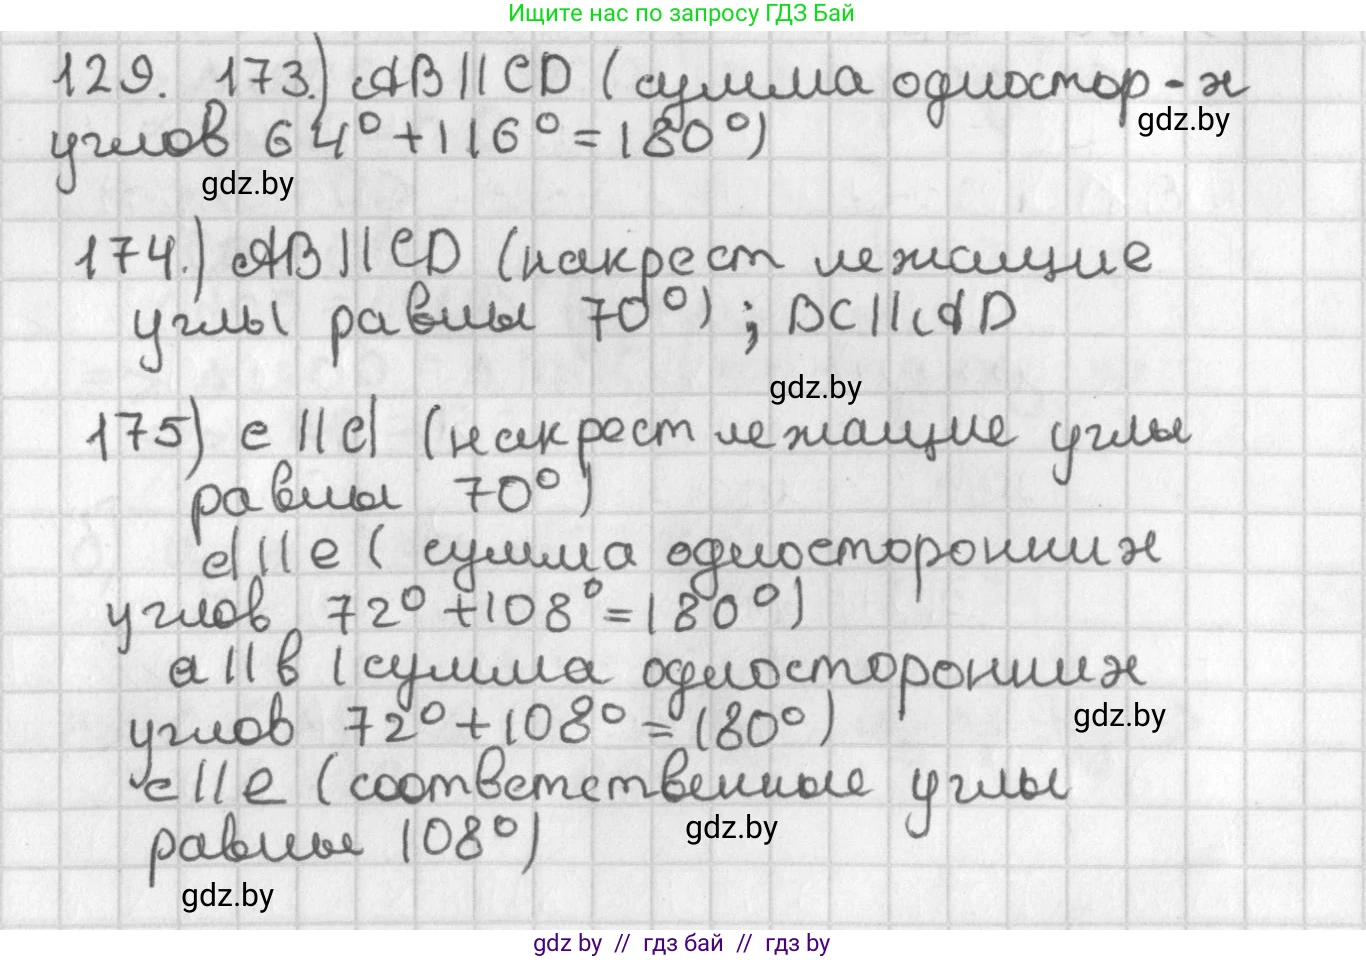 Ищите нас по запросу ГДЗ Бай
129. 173.) AB || CD (сумма одностор-х
gdz.by
углов 64° + 116° = 180°)
gdz.by
174.) AB || CD (накрест лежащие
углы равны 70°) ; BC || AD
gdz.by
175) c || d (накрест лежащие углы
равны 70°)
d || e ( сумма односторонних
углов 72° + 108° = 180°)
a || в (сумма односторонних
gdz.by
углов 72° + 108° = 180°)
c || e (соответственные углы
gdz.by
равны 108°)
gdz.by
gdz by // гдз бай // гдз by